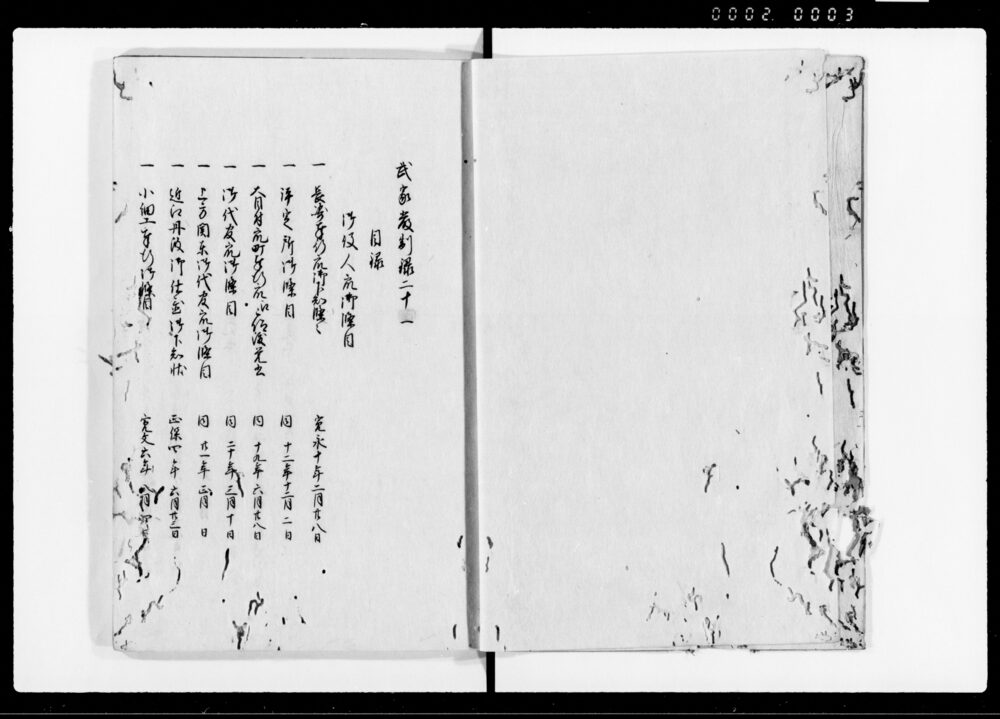 0002 0003
武家嚴制録二十一
目録
御役人方御條目
一 長崎奉行方御下知條々 寛永十年二月廿八日
一 評定所御條目 同 十二年十二月二日
一 大目付方町奉行方 同 十九年六月廿八日
一 御代官方御條目 同 二十年三月十日
一 上方関東御代官方御條目 同 廿一年正月 日
一 近江丹波御仕置御下知状 正保四年六月廿三日
一 小細工奉行御條目 寛文六年